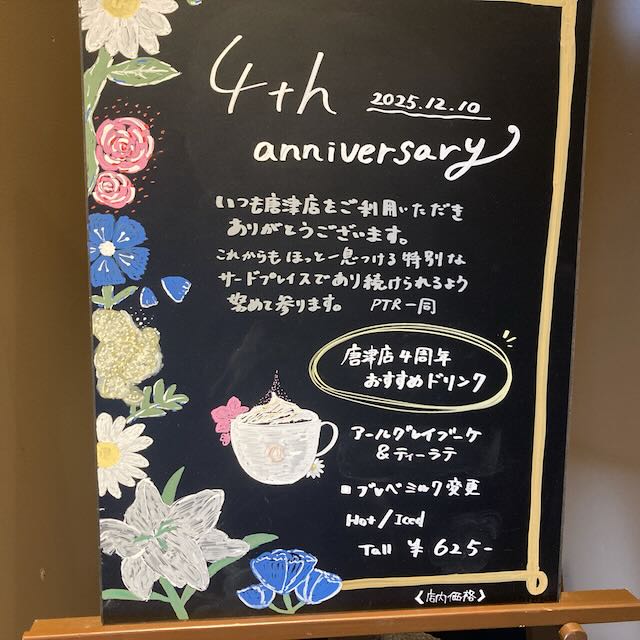 4th 2025.12.10
anniversary
いつも唐津店をご利用いただき
ありがとうございます。
これからもほっと一息つける特別な
サードプレイスであり続けられるよう
努めて参ります。 PTR一同
唐津店4周年
おすすめドリンク
アールグレイブーケ
&ティーラテ
■ブレベミルク変更
Hot/Iced
Tall ¥625-
《店内価格》